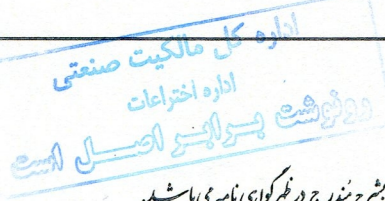 اداره کل مالکیت صنعتی
اداره اختراعات
رونوشت برابر اصل است
بشرح مندرج در ظهر گواهی نامه می باشد.